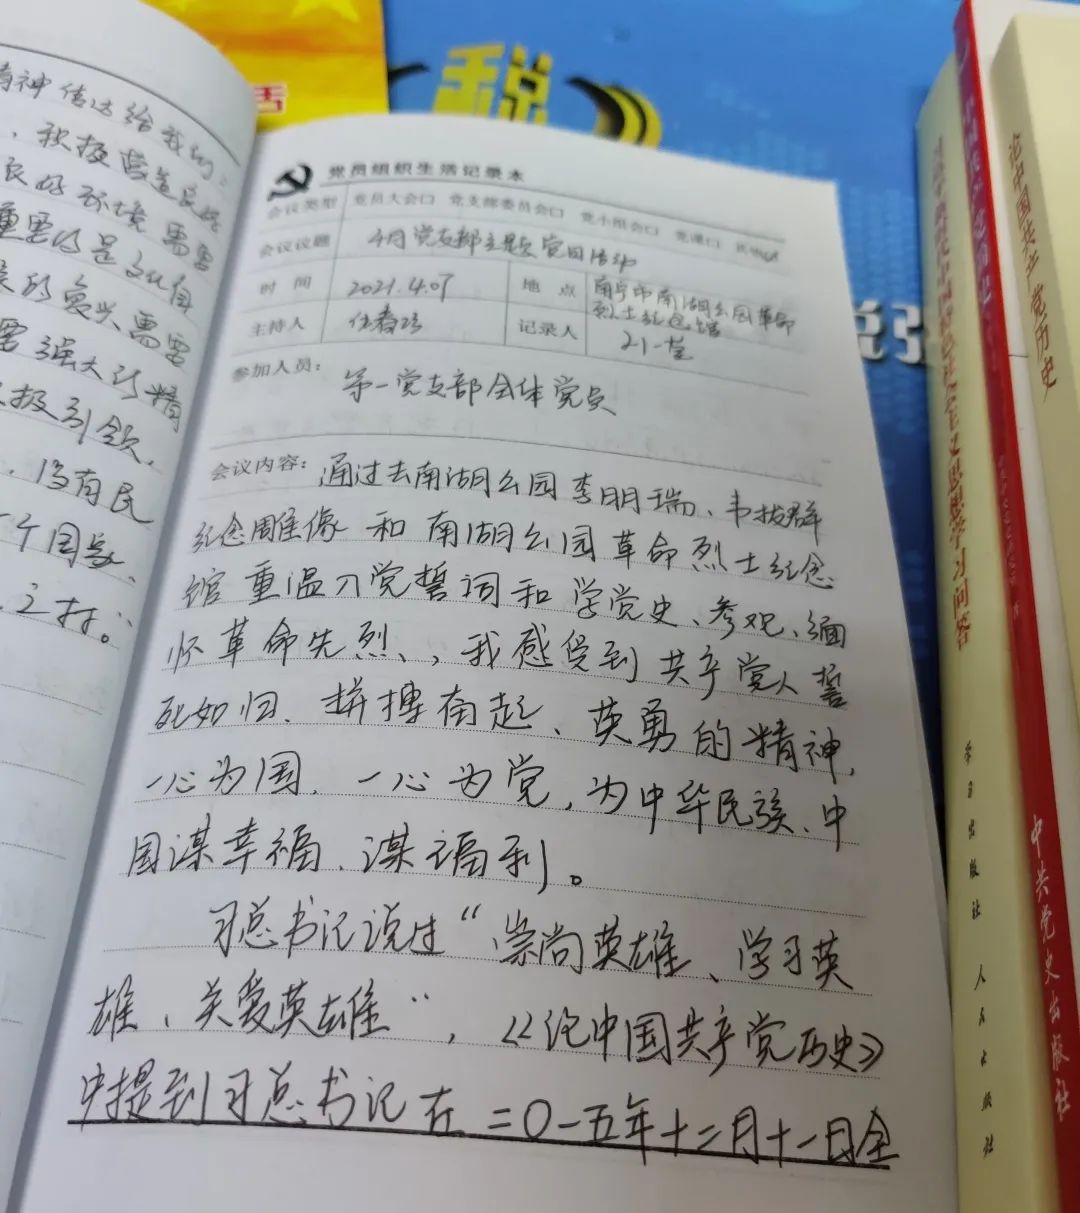 精神传达给我们
积极营造良好
良好环境需要
重要的是文化自
的复兴需要
需强大的精
极引领
没有民
个国家
之林。
活
税
党员组织生活记录本
会议类型 党员大会口 党支部委员会口 党小组会口 党课口 其他
会议议题 4月党支部主题党日活动
时 间 2021.4.09 地 点 南宁市南湖公园革命
烈士纪念馆
主持人 记录人
参加人员： 第一党支部全体党员
会议内容：通过去南湖公园李明瑞、韦拔群
纪念雕像和南湖公园革命烈士纪念
馆重温入党誓词和学党史、参观、缅
怀革命先烈、，我感受到共产党人誓
死如归、拼搏奋起、英勇的精神，
一心为国、一心为党，为中华民族、中
国谋幸福、谋福利。
习总书记说过“崇尚英雄、学习英
雄、关爱英雄”，《论中国共产党历史》
中提到习总书记在二〇一五年十二月十一日全
习近平新时代中国特色社会主义思想学习问答
学习出版社 人民出版社
中国共产党简史
中共党史出版社
论中国共产党历史